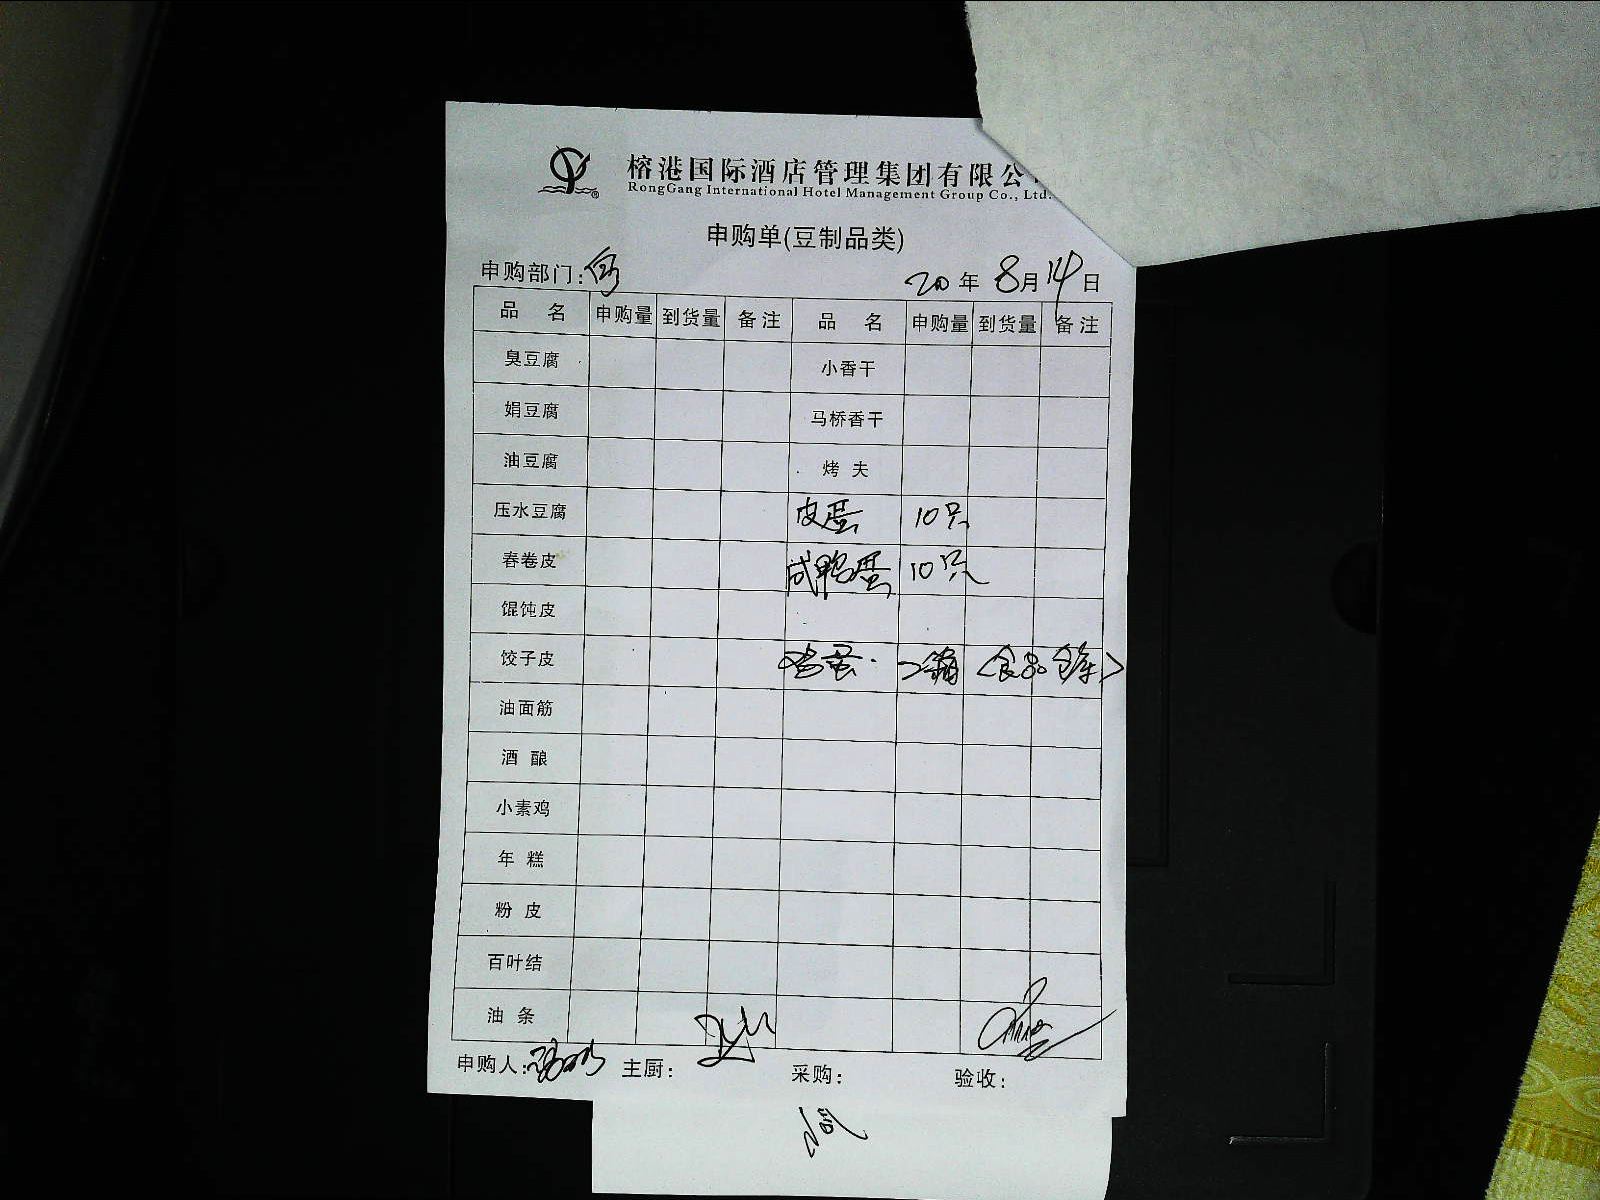 榕港国际酒店管理集团有限公
RongGang International Hotel Management Group Co., Ltd.
申购单(豆制品类)
申购部门: 20 年 8月14日
品 名 申购量 到货量 备注 品 名 申购量 到货量 备注
臭豆腐 小香干
娟豆腐 马桥香干
油豆腐 烤 夫
压水豆腐 皮蛋 10只
春卷皮 咸鸭蛋 10只
馄饨皮
饺子皮 鸡蛋 2箱 <食品仓库>
油面筋
酒 酿
小素鸡
年 糕
粉 皮
百叶结
油 条
申购人: 主厨: 采购: 验收: